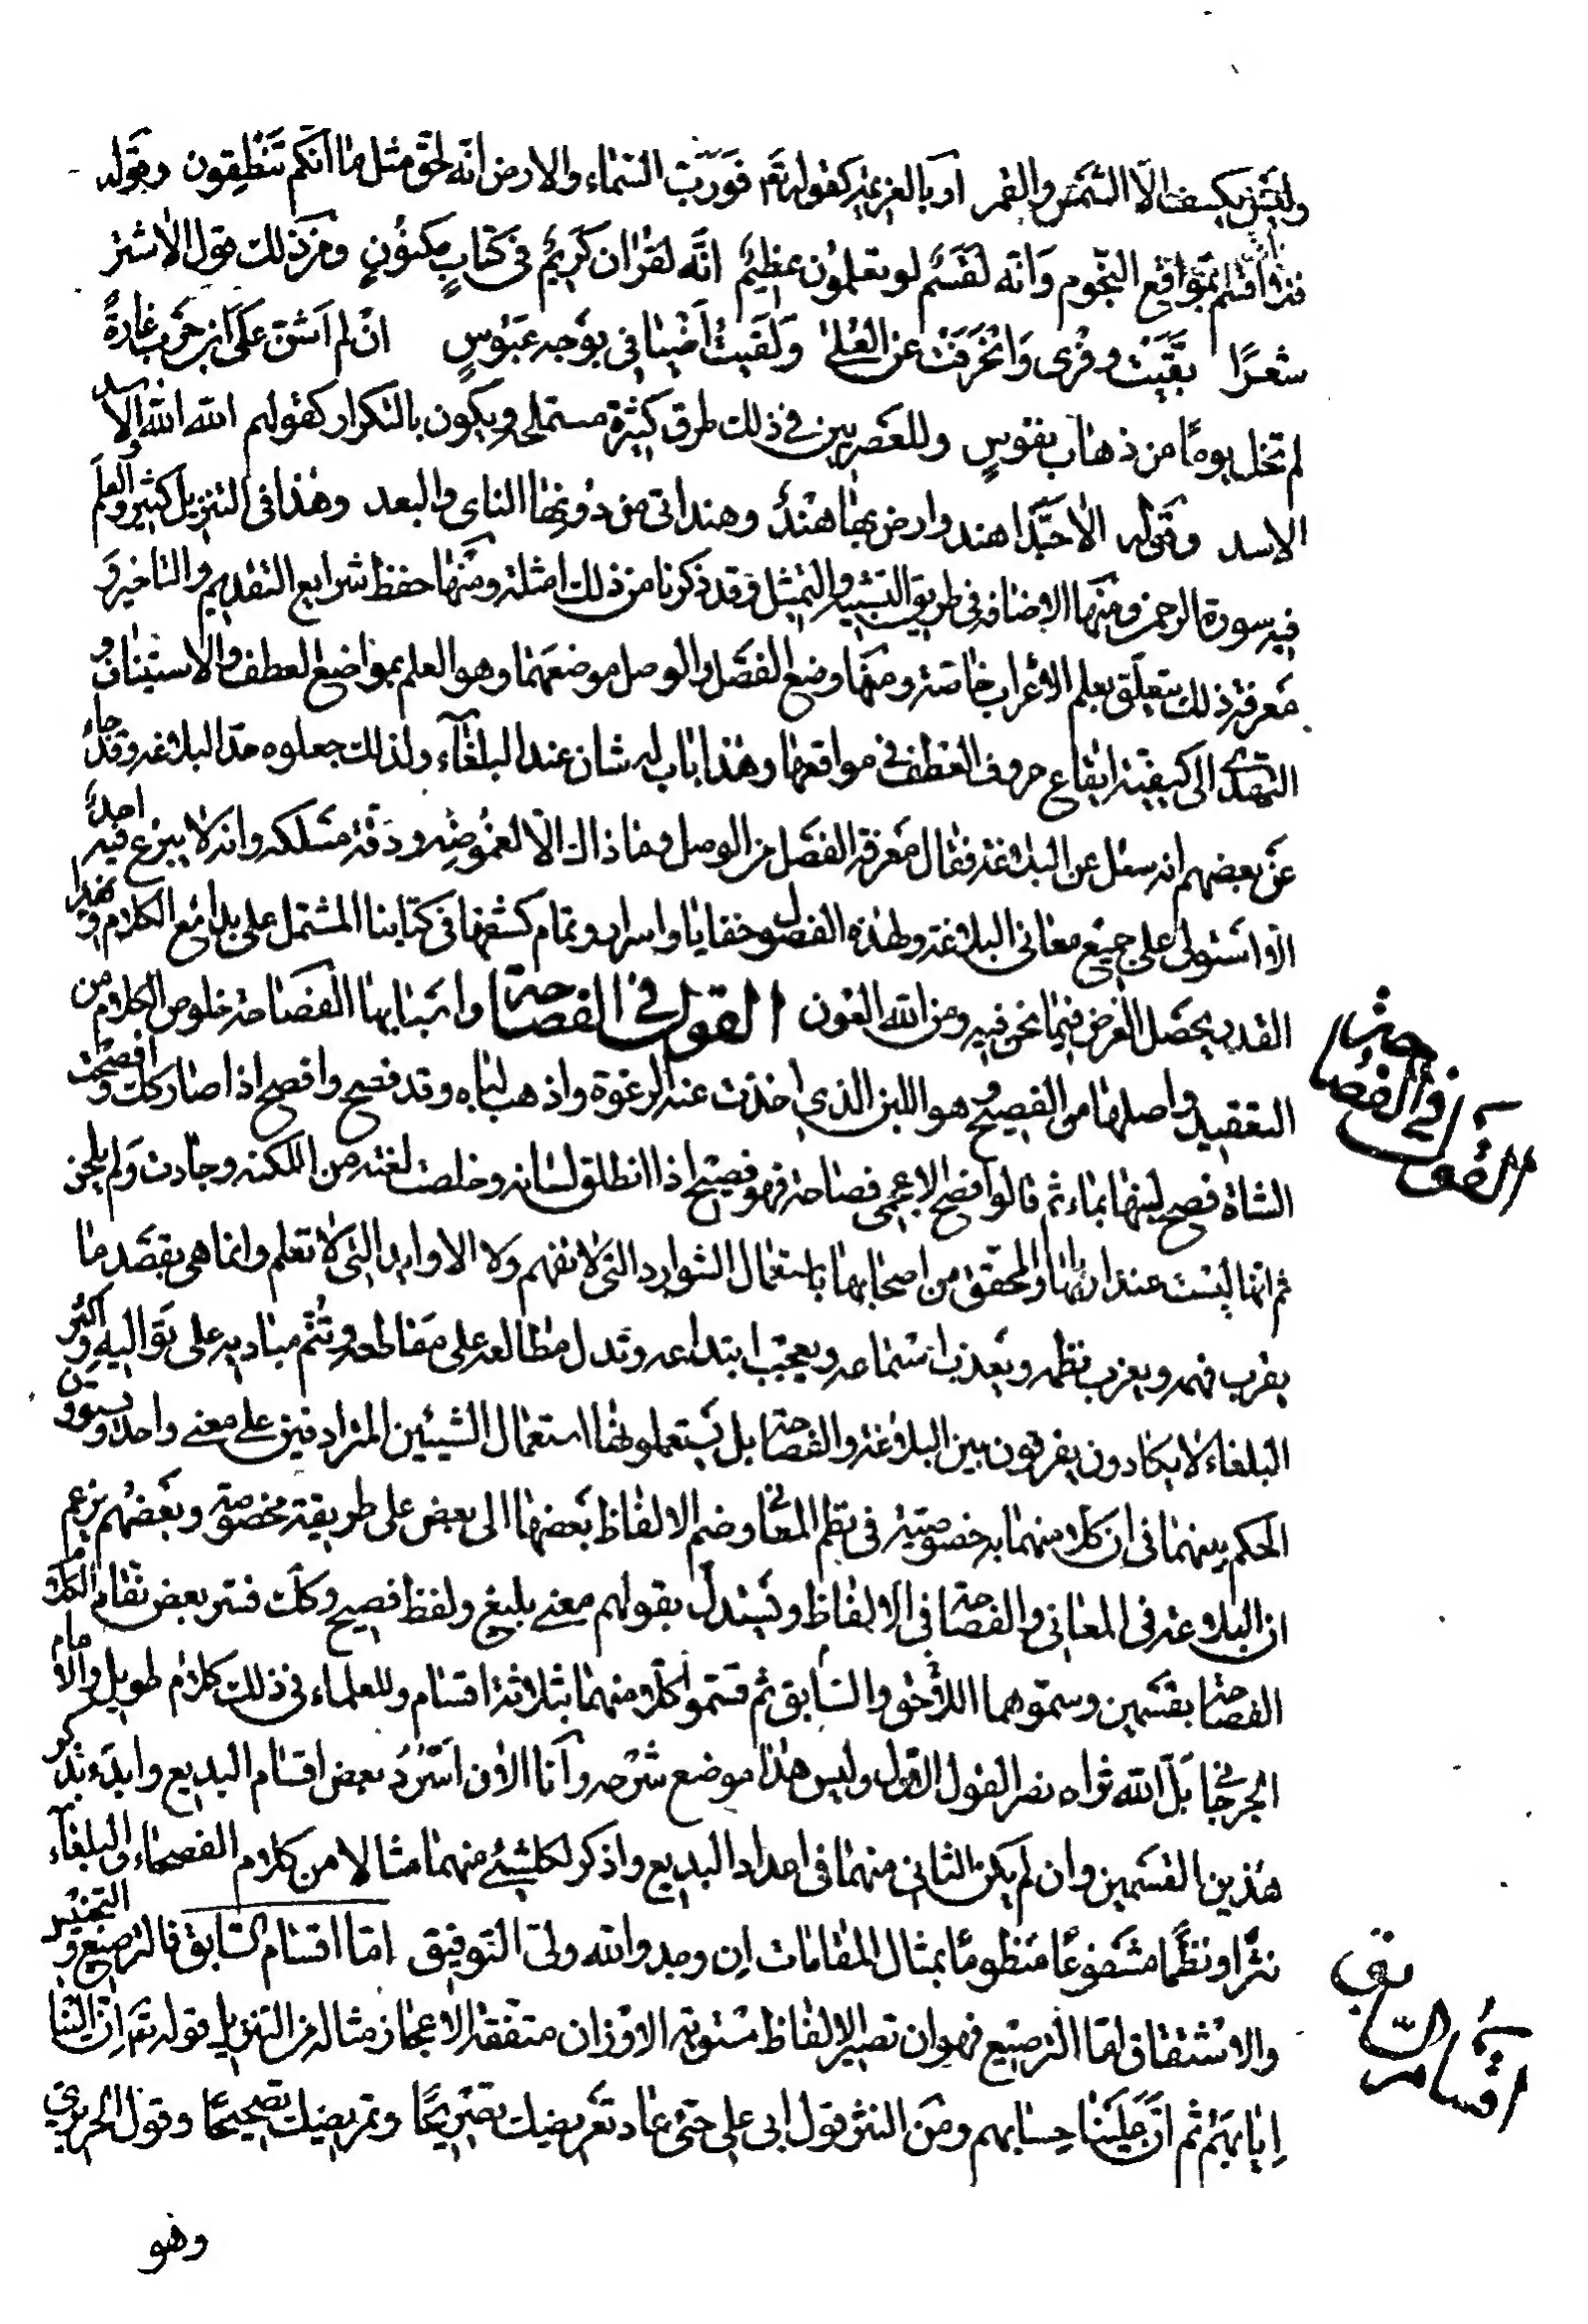 وليس يكسف الّا الشّمس والقمر او بالعزيمة كقوله تعٓ فوربّ السّماء والارض انّه لحقّ مثل ما انّكم تنطقون وبقوله
فلا اقسم بمواقع النّجوم وانّه لقسم لو تعلمون عظيم انّه لقران كريم في كتاب مكنون ومن ذلك قول الاشتر
شعرًا بقّيت وفرى وانحرفت عن العلى ولقيت اضيافي بوجه عبوس ان لم اشنّ على ابن حرب غارةً
لم تخل يومًا من ذهاب نفوس وللعصريين في ذلك طرق كثيرة مستملحة ويكون بالتكرار كقولهم الله الله والاسد
الاسد وقوله الا حبّذا هند وارض بها هند وهند اتى من دونها الناى والبعد وهذا في التنزيل كثير والعلم
فيه سورة الرحمن ومنها الاضافة في طريق التشبيه والتمثيل وقد ذكرنا من ذلك امثلة ومنها حفظ شرايع التقديم والتاخير و
معرفة ذلك يتعلّق بعلم الاعراب خاصة ومنها وضع الفصل والوصل موضعهما وهو العلم بمواضع العطف والاستيناف و
التهدّى الى كيفية ايقاع حروف العطف في مواقعها وهذا باب له شان عند البلغآء ولذلك جعلوه حدّ البلاغة وقد جاء
عن بعضهم انه سئل عن البلاغة فقال معرفة الفصل من الوصل وما ذاك الّا لغموضه ودقّة مسلكه وانه لا يبرع فيه احد
الّا استولى على جميع معانى البلاغة ولهذه الفصول خفايا واسرار وتمام كشفها في كتابنا المشتمل على بدايع الكلام وبهذا
القدر يحصل الغرض فيما نحن فيه ومن الله العون القول في الفصاحة واربابها الفصاحة خلوص الكلام من
التعقيد واصلها من الفصيح وهو اللبن الذي اخذت عنه الرغوة واذهب لباه وقد فصح وافصح اذا صار كك وافصحت
الشاة فصح لبنها بماء ثم قالوا افصح الاعجمى فصاحة فهو فصيح اذا انطلق لسانه وخلصت لغته من اللكنة وجادت ولم يلحن
ثم انّها ليست عند اربابها والمحقق من اصحابها باستعمال الشوارد التي لا تفهم ولا الاوابد التي لا تعلم وانما هى بقصد ما
يقرب فهمه ويعزب نظمه ويعذب استماعه ويعجب ابتداعه وتدل مطالعه على مقاطعه وتنمّ مباديه على تواليه واكثر
البلغاء لا يكادون يفرقون بين البلاغة والفصاحة بل يستعملونهما استعمال الشيئين المترادفين على معنى واحد ويسوون
الحكم بينهما في ان كلّا منهما به خصوصيّة في نظم المعاني وضم الالفاظ بعضها الى بعض على طريقة مخصوصة وبعضهم يزعم
ان البلاغة في المعانى والفصاحة في الالفاظ ويستدلّ بقولهم معنى بليغ ولفظ فصيح وكك فسّر بعض نقاد الكلام
الفصاحة بقسمين وسمّوهما اللاحق والسّابق ثم قسّموا كلّا منهما بثلاثة اقسام وللعلماء في ذلك كلام طويل والامام
الجرجاني بلّ الله ثراه نصر القول الاول وليس هذا موضع شرحه وانا الان اسرد بعض اقسام البديع وابدء بذكر
هذين القسمين وان لم يكن الثاني منهما في اعداد البديع واذكر لكلّ شئ منهما مثالا من كلام الفصحاء والبلغآء
نثرًا ونظمًا مشفوعًا منظومًا بمثال المقامات ان وجد والله ولىّ التوفيق امّا اقسام السّابق فالترصيع والتجنيس
والاشتقاق امّا الترصيع فهو ان تصير الالفاظ مستوية الاوزان متفقة الاعجاز مثاله من التنزيل قوله تعٓ انّ الينا
ايابهم ثم انّ علينا حسابهم ومن النثر قول ابى على حتى عاد تعريضك تصريحًا وتمريضك تصحيحًا وقول الحريري
وهو
القول في الفصاحة
اقسام السّابق